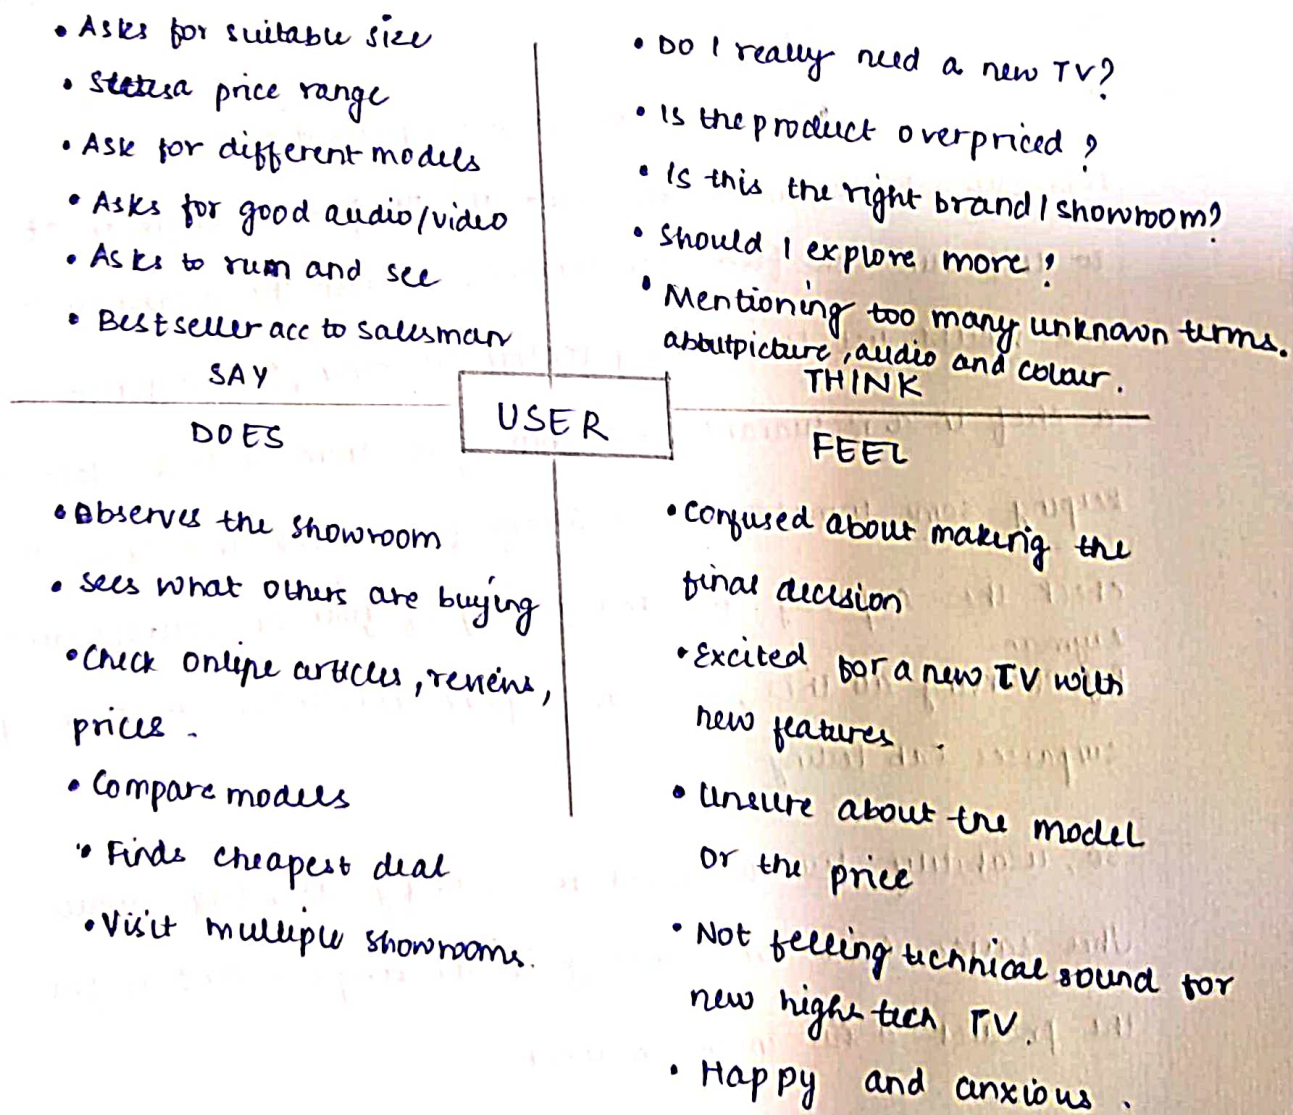 • Asks for suitable size
• States a price range
• Ask for different models
• Asks for good audio/video
• Asks to run and see
• Bestseller acc to salesman
SAY
• DO I really need a new TV?
• Is the product overpriced?
• Is this the right brand/showroom?
• Should I explore more?
• Mentioning too many unknown terms.
about picture, audio and colour.
THINK
USER
DOES
• Observes the showroom
• Sees what others are buying
• Check online articles, reviews,
prices.
• Compare models
• Finds cheapest deal
• Visit multiple showrooms.
FEEL
• Confused about making the
final decision
• Excited for a new TV with
new features.
• Unsure about the model
or the price
• Not feeling technical sound for
new high tech TV.
• Happy and anxious.